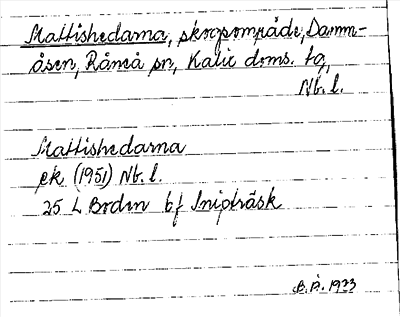 Mattishedarna, skogsområde, Damm-
åsen, Råneå sn, Kalix doms. tg,
Nb. l.
Mattishedarna
ek. (1951) Nb. l.
25 L Boden bf Snipträsk
B.P. 1973